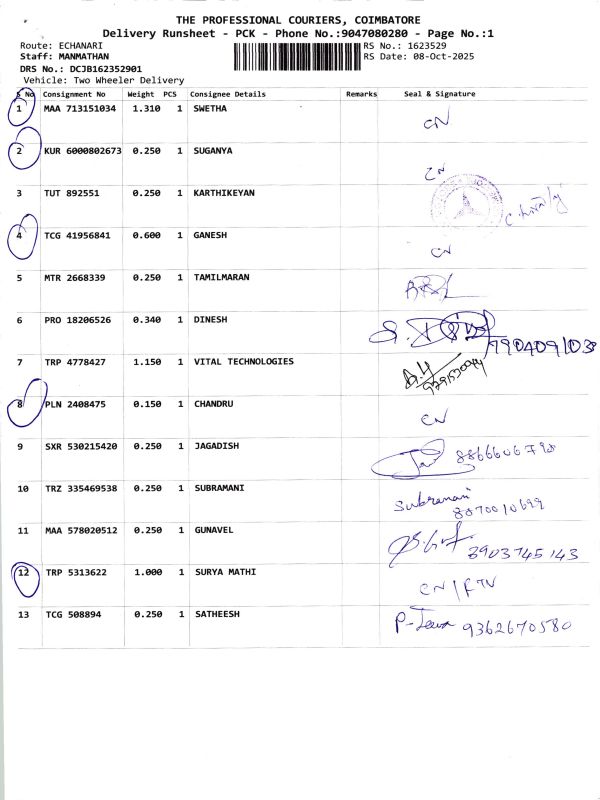 THE PROFESSIONAL COURIERS, COIMBATORE
Delivery Runsheet - PCK - Phone No.:9047080280 - Page No.:1
Route: ECHANARI RS No.: 1623529
Staff: MANMATHAN RS Date: 08-Oct-2025
DRS No.: DCJB162352901
Vehicle: Two Wheeler Delivery
S No Consignment No Weight PCS Consignee Details Remarks Seal & Signature
1 MAA 713151034 1.310 1 SWETHA CN
2 KUR 6000802673 0.250 1 SUGANYA CN
3 TUT 892551 0.250 1 KARTHIKEYAN
4 TCG 41956841 0.600 1 GANESH CN
5 MTR 2668339 0.250 1 TAMILMARAN
6 PRO 18206526 0.340 1 DINESH
7 TRP 4778427 1.150 1 VITAL TECHNOLOGIES
8 PLN 2408475 0.150 1 CHANDRU CN
9 SXR 530215420 0.250 1 JAGADISH 8866606798
10 TRZ 335469538 0.250 1 SUBRAMANI Subramani
8870010699
11 MAA 578020512 0.250 1 GUNAVEL 8903745143
12 TRP 5313622 1.000 1 SURYA MATHI CN/RTN
13 TCG 508894 0.250 1 SATHEESH 9362670580